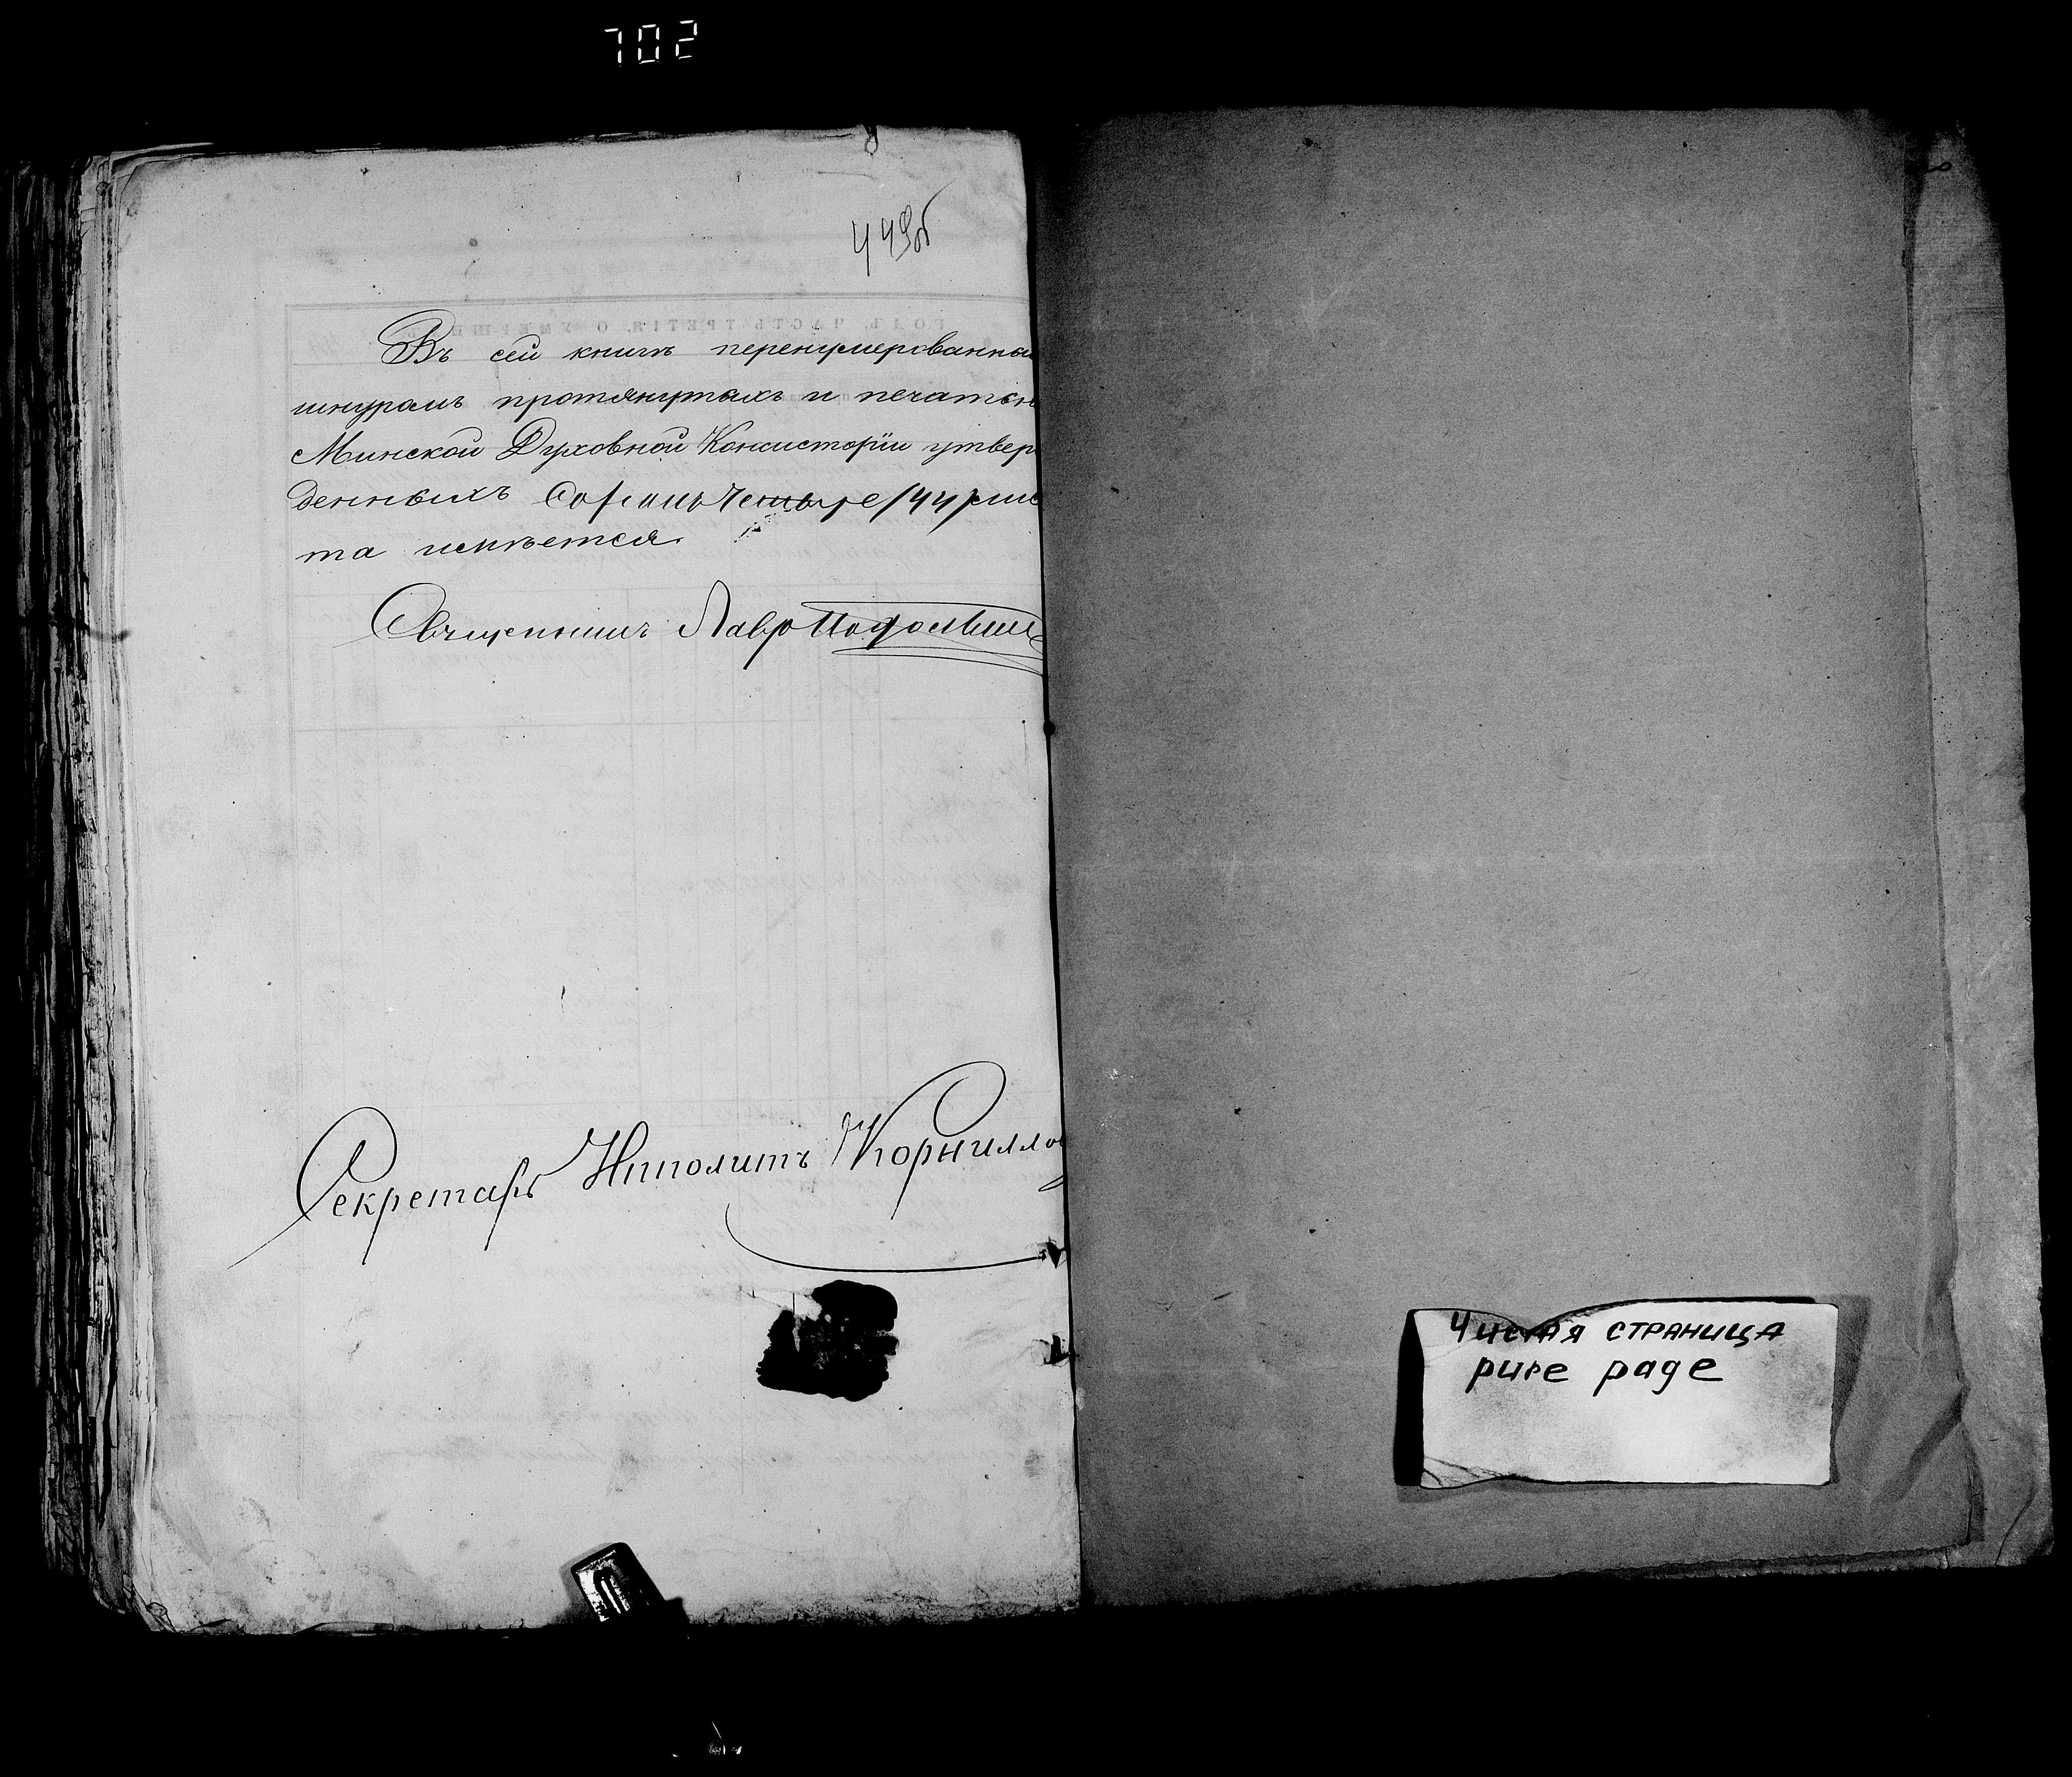 702
449об
Въ сей книгѣ перенумерованны
шнуромъ протянутыхъ и печатью
Минской Духовной Консисторіи утвер
денныхъ Сорокъ Четыре /44/ лис
та имѣется.
Священникъ Лавр
Секретарь Ипполитъ Корнилло
Чистая страница
pure page